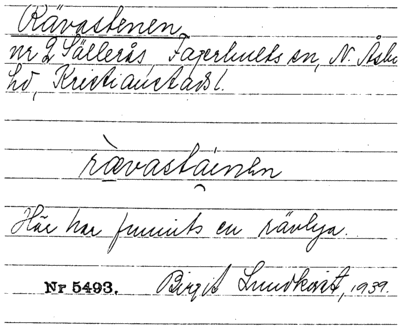 Rävastenen,
nr 2 Sällerås, Fagerhults sn, N. Åsbo
hd, Kristianstads l.
rävastáinen
Här har funnits en rävlya.
Nr 5493. Birgit Lundkvist, 1939.